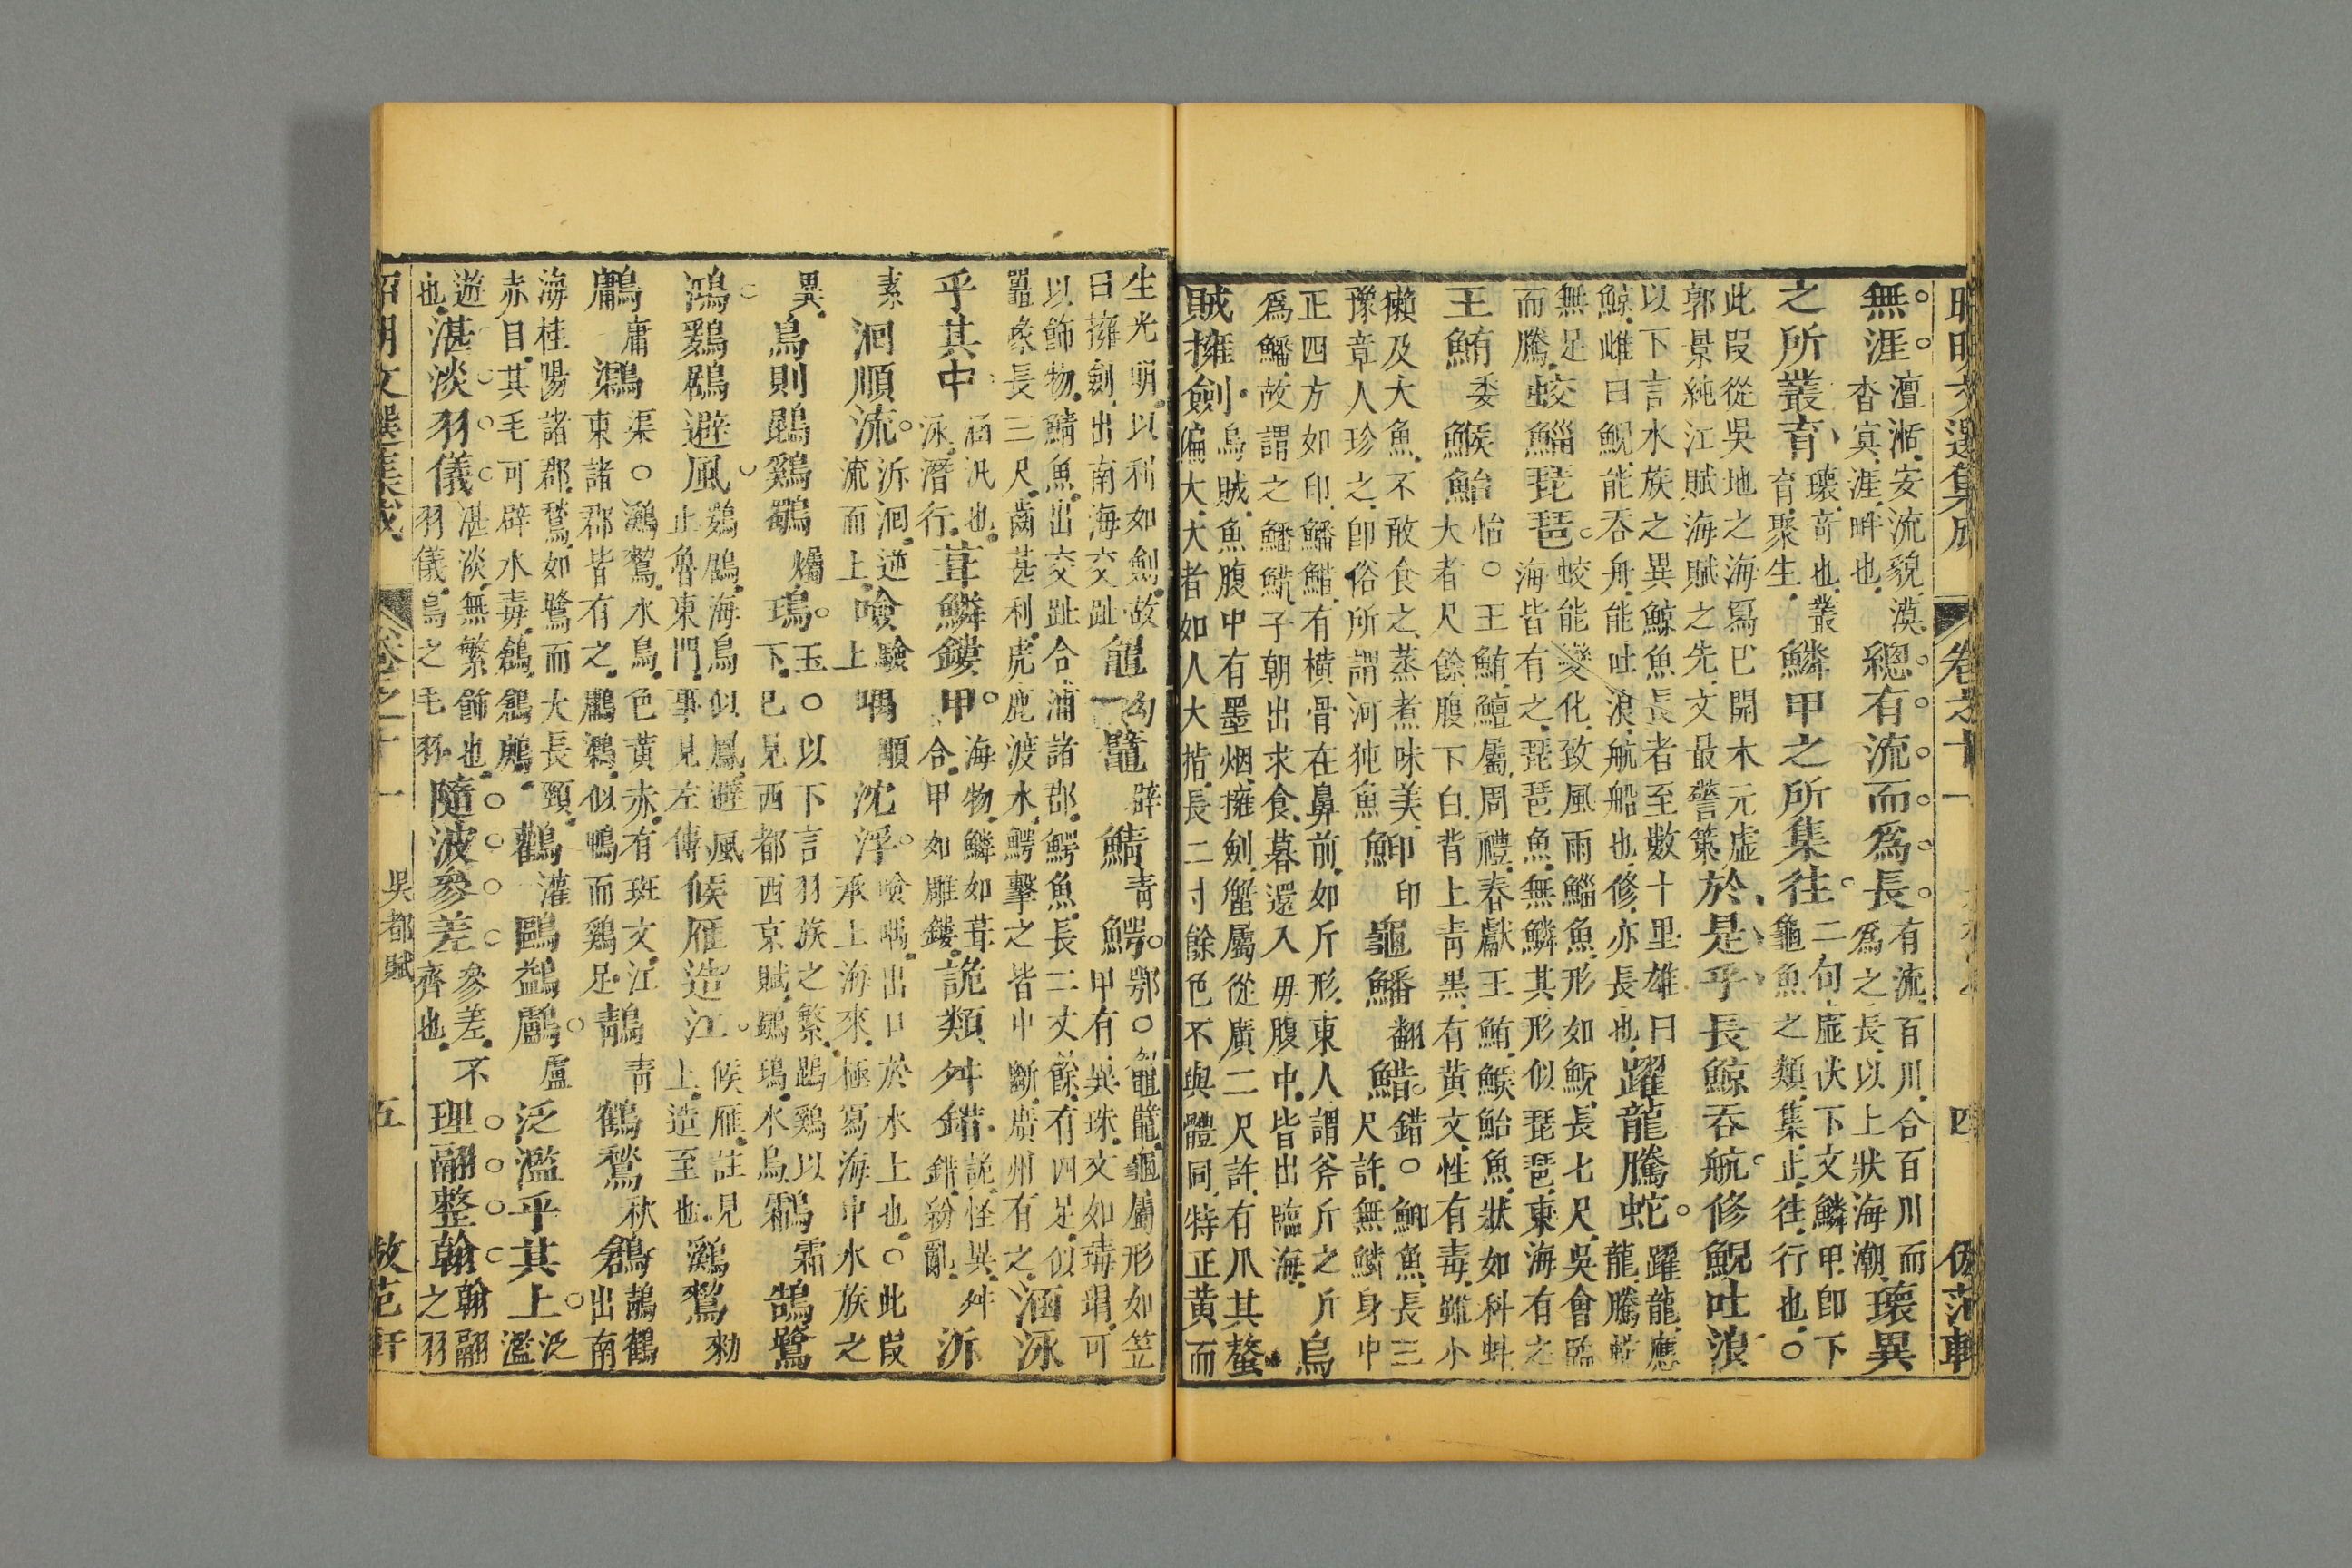 昭明文選集成 卷之十一 四 倣范軒
無涯澶湉安流貌漠杳㝠涯畔也總有流而爲長有流百川合百川而爲之長以上狀海潮瓌異
之所叢育瓌竒也叢育聚生鱗甲之所集往二句虛伏下文鱗甲卽下龜魚之類集止往行也○
此叚從吳地之海寫已開木元虛郭景純江賦海賦之先文最警策於是乎長鯨吞航修鯢吐浪
以下言水族之異鯨魚長者至數十里雄曰鯨雌曰鯢能吞舟能吐浪航船也修亦長也躍龍騰蛇躍龍應龍騰蛇
無足而騰蛟鯔琵琶蛟能變化致風雨鯔魚形如鯢長七尺吳會臨海皆有之琵琶魚無鱗其形似琵琶東海有之
王鮪委鯸鮐怡○王鮪鱣屬周禮春獻王鮪鯸鮐魚狀如科蚪大者尺餘腹下白背上靑黑有黃文性有毒雖小
獺及大魚不敢食之蒸煮味美豫章人珍之卽俗所謂河㹠魚鮣印龜鱕翻䱜錯○鮣魚長三尺許無鱗身中
正四方如印鱕䱜有橫骨在鼻前如斤形東人謂斧斤之斤爲鱕故謂之鱕䱜子朝出求食暮還入母腹中皆出臨海烏
賊擁劍烏賊魚腹中有墨烟擁劍蟹屬從廣二尺許有爪其螯偏大大者如人大指長二寸餘色不與體同特正黃而
生光明以利如劍故曰擁劍出南海交趾䵶勾鼊辟鯖靑鰐鄂○䵶鼊龜屬形如笠甲有異珠文如瑇瑁可
以飾物鯖魚出交趾合浦諸郡鰐魚長二丈餘有四足似鼉喙長三尺齒甚利虎鹿渡水鰐擊之皆中斷廣州有之涵泳
乎其中涵汎也泳潛行葺鱗鏤甲海物鱗如葺合甲如雕鏤詭類舛錯詭怪異舛錯紛亂泝
素洄順流泝洄逆流而上噞驗上喁顒沈浮噞喁出口於水上也○此叚承上海來極寫海中水族之
異鳥則鵾鷄鸀燭鳿玉○以下言羽族之繁鵾鷄以下已見西都西京賦鸀鳿水鳥鸘霜鵠鷺
鴻鷄鶋避風鷄鶋海鳥似鳳避風止魯東門事見左傳候雁造江候雁註見上造至也鸂鷘勑
鷛庸𪆟渠○鸂鷘水鳥色黃赤有斑文江東諸郡皆有之鷛𪆟似鴨而鷄足鶄靑鶴鶖秋鶬鶄鶴出南
海桂陽諸郡鶖如鷺而大長頸赤目其毛可辟水毒鶬鶬鴰鸛灌鷗鷁鸕盧泛濫乎其上泛濫
遊也湛淡羽儀湛淡無繁飾也羽儀鳥之毛羽隨波參差參差不齊也理翮整翰翰翮之羽
昭明文選集成 卷之十一 吳都賦 五 倣范軒